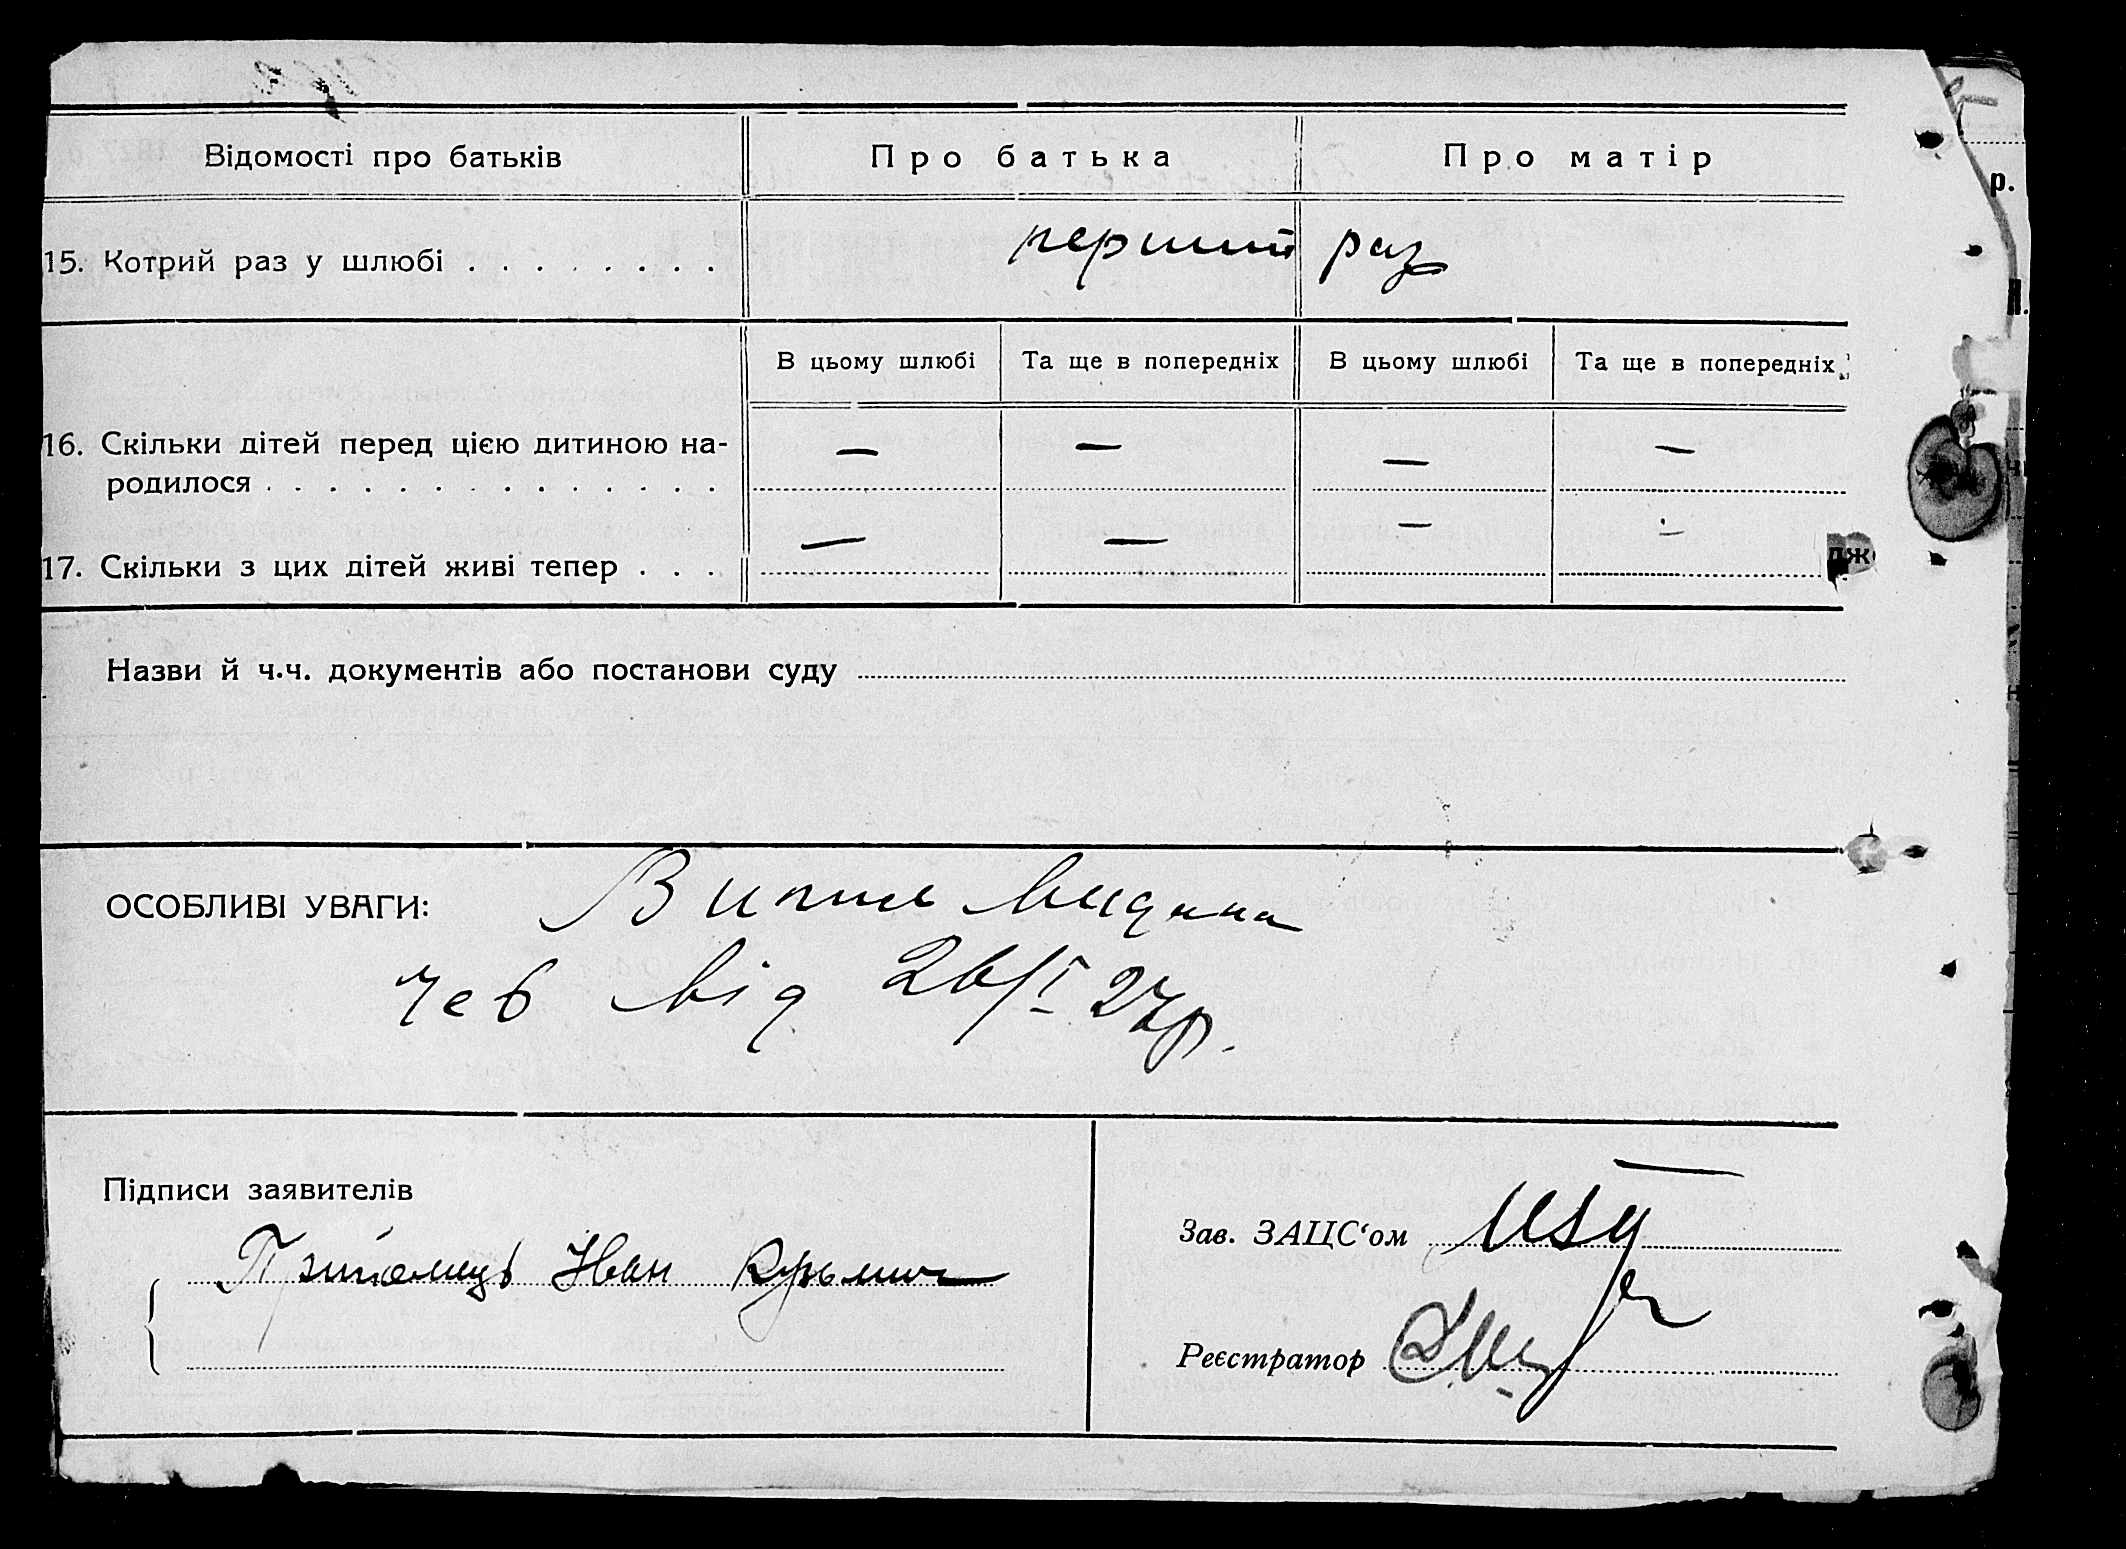 Відомості про батьків Про батька Про матір
15. Котрий раз у шлюбі . . . . . . . . перший раз
В цьому шлюбі Та ще в попередніх В цьому шлюбі Та ще в попередніх
16. Скільки дітей перед цією дитиною на- — — — —
родилося . . . . . . . . . . . . . .
17. Скільки з цих дітей живі тепер . . . — — — —
Назви й ч.ч. документів або постанови суду
ОСОБЛИВІ УВАГИ: Випис видана
від 26/I 27р.
Підписи заявителів
Іван
Зав. ЗАЦС‘ом
Реєстратор
р.
дж